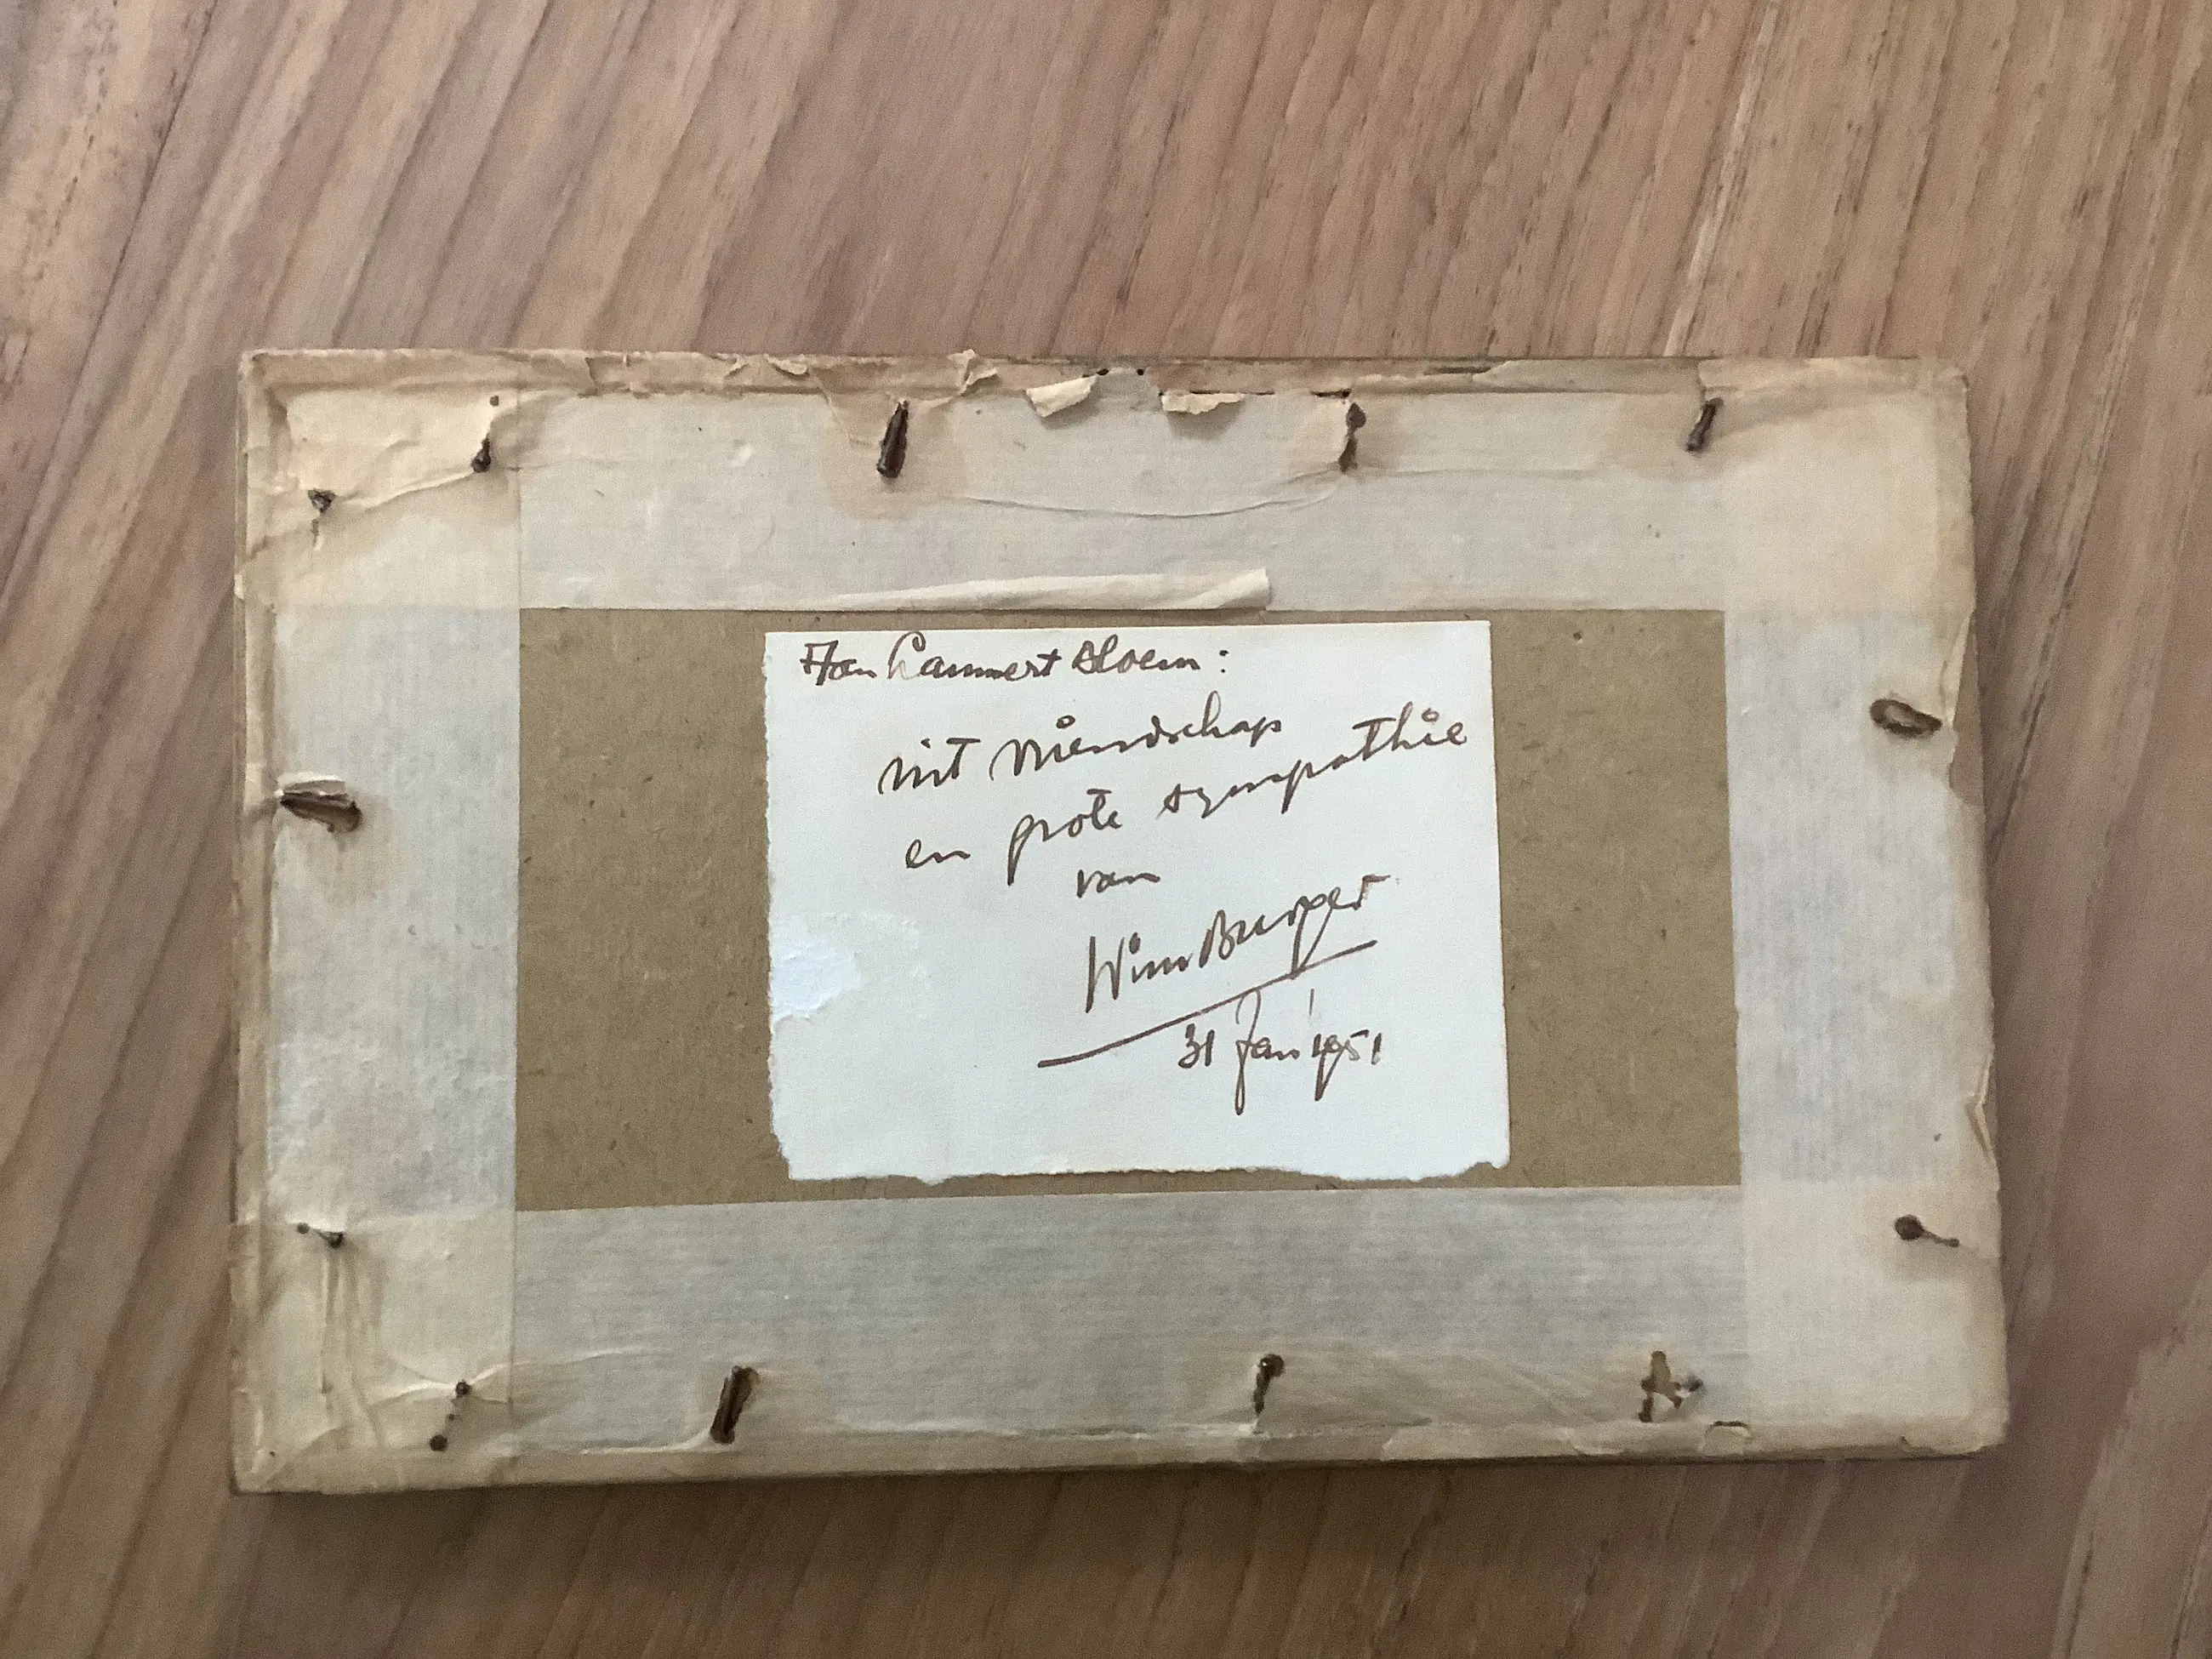 Aan Lammert Bloem:
uit vriendschap
en grote sympathie
van
Wim Burger
31 Jan 1951